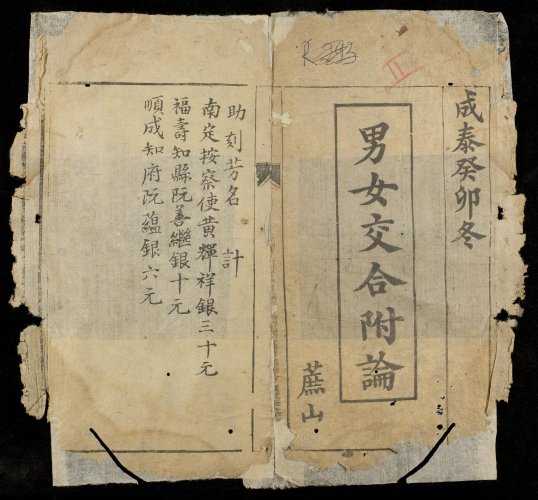 成泰癸卯冬
男女交合附論
蕉山
助刻芳名 計
南定按察使黄輝祥銀三十元
福壽知縣阮善繼銀十元
順成知府阮蘊銀六元
R.293
II